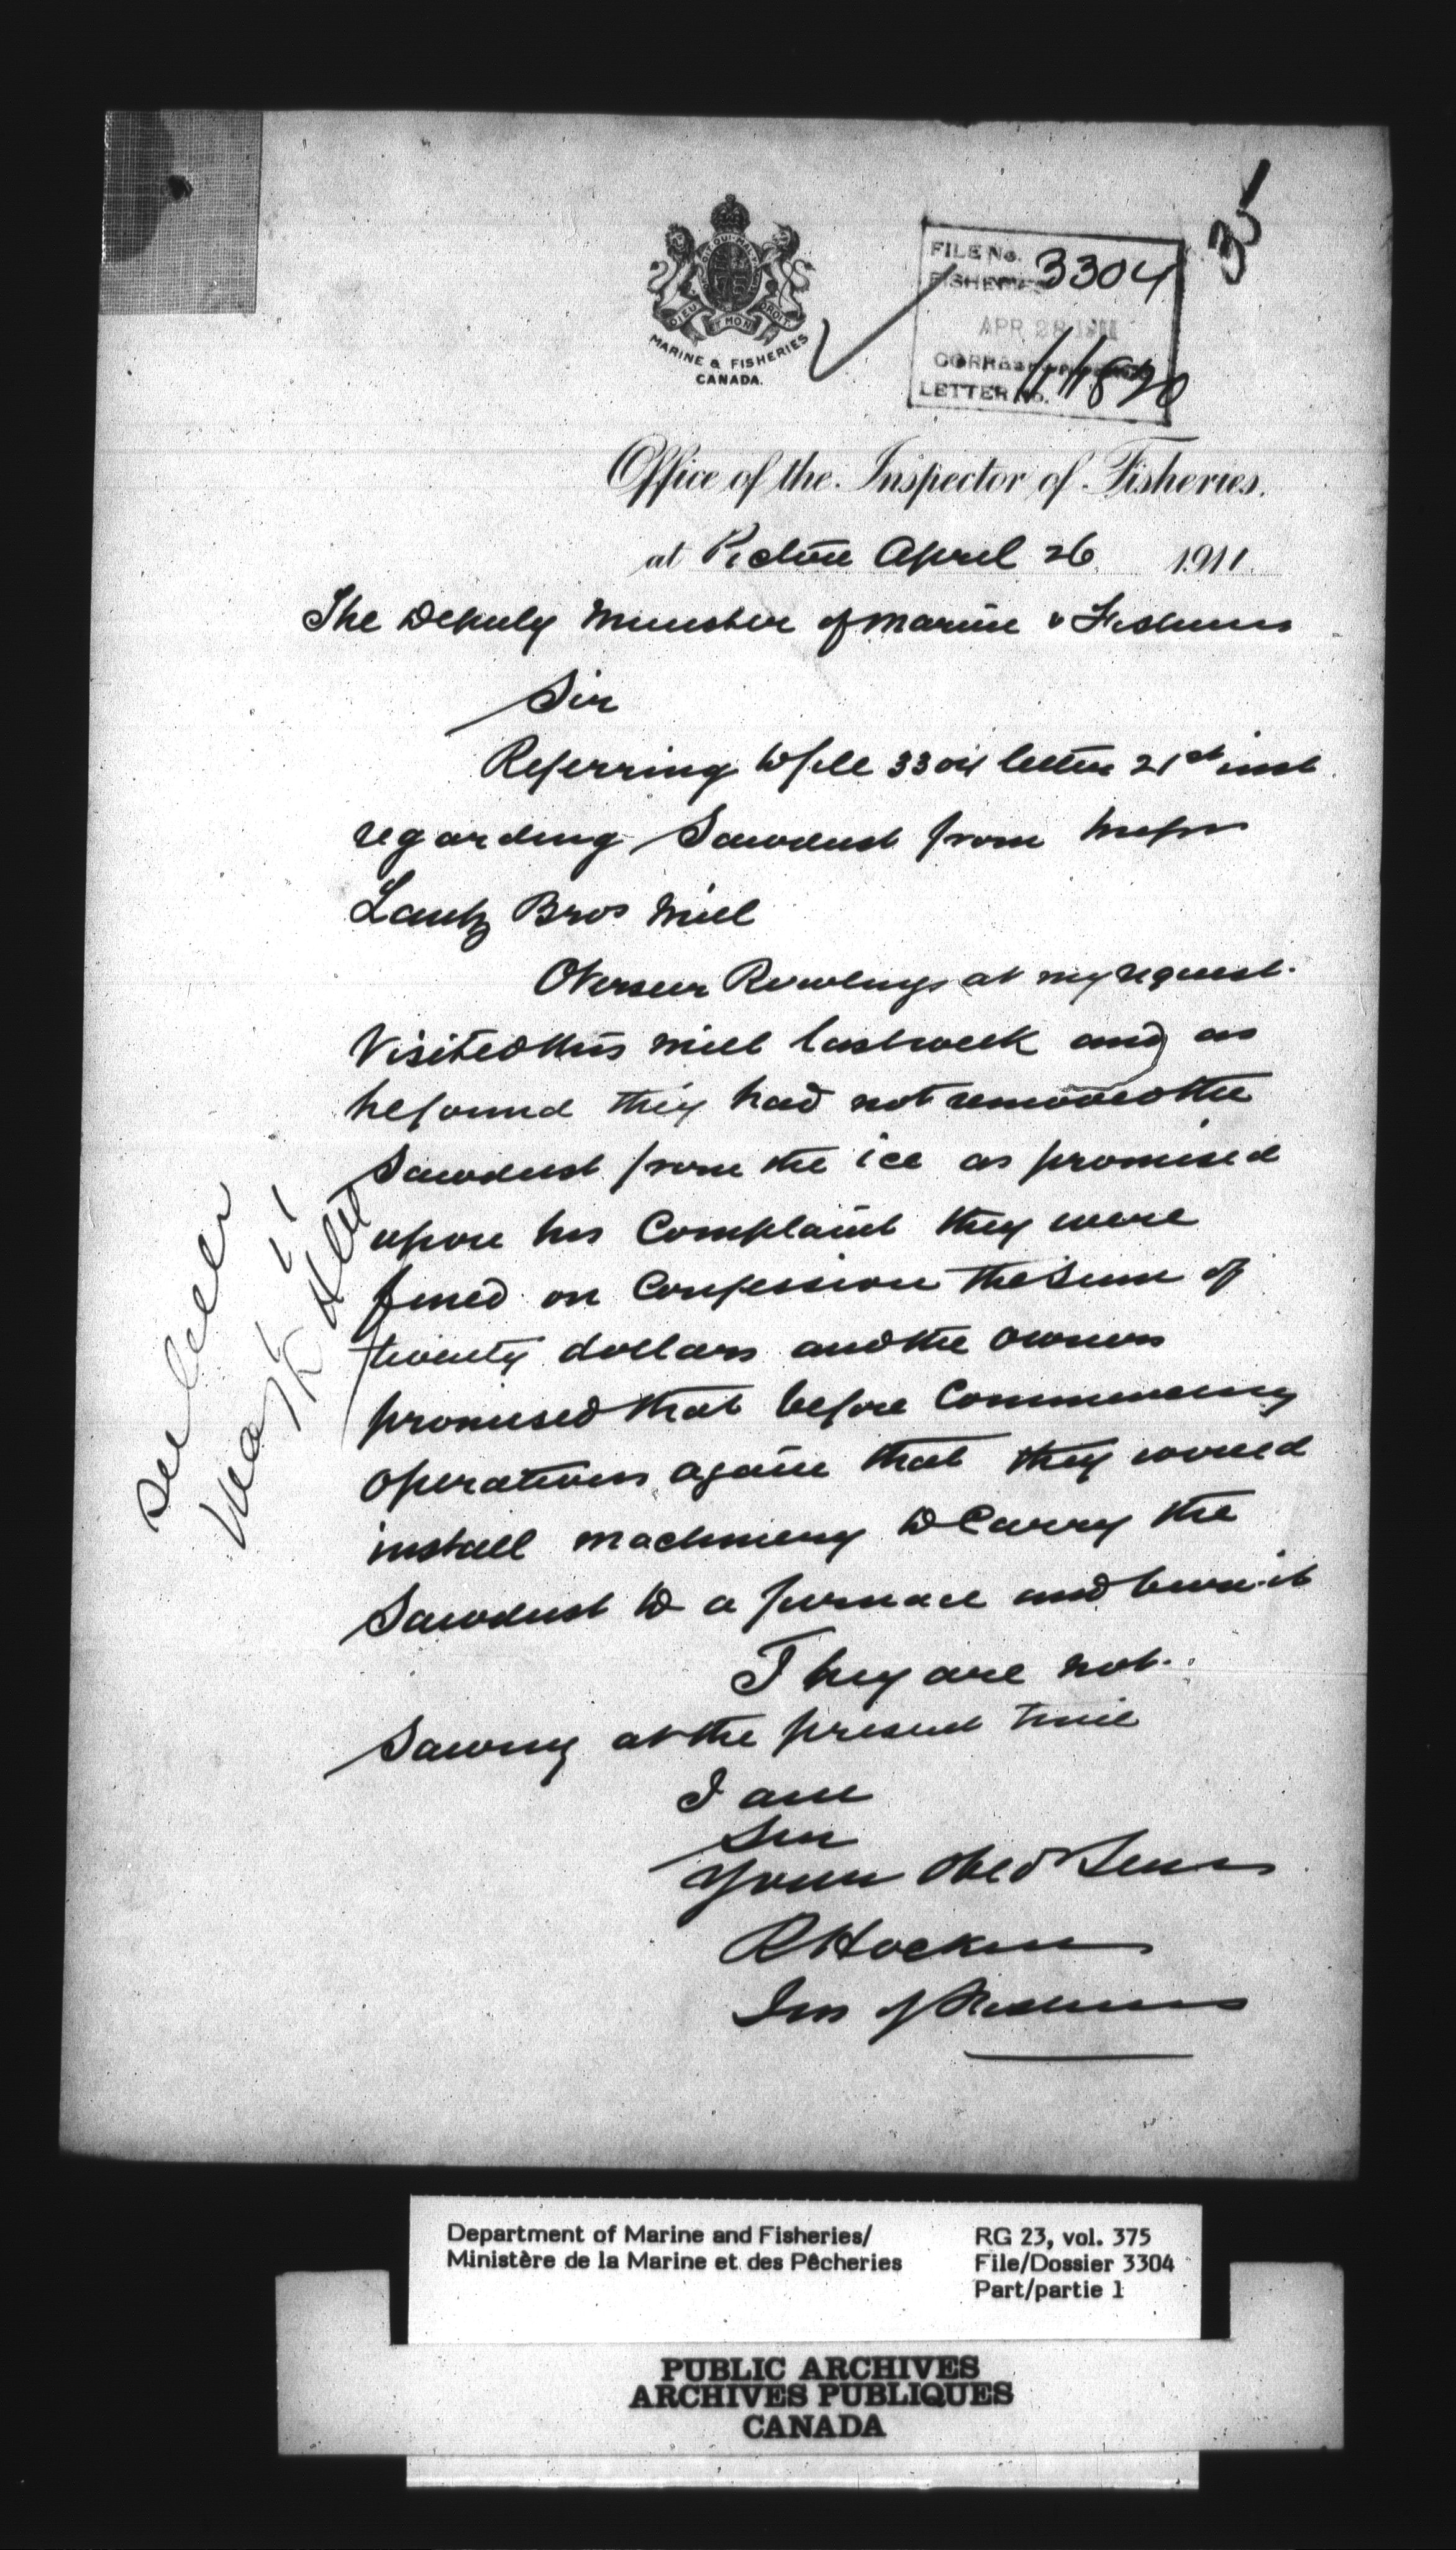 35
FILE No. 3304
FISHERIES
APR 28 1911
CORRESPONDENCE
LETTER No. 11820
DIEU ET MON DROIT
MARINE & FISHERIES
CANADA.
Office of the Inspector of Fisheries.
at Pictou April 26 1911
The Deputy Minister of Marine & Fisheries
Sir
Referring to file 3304 letter 21st inst
regarding Sawdust from Messrs
Lantz Bros Mill
Overseer Rowlings at my request
Visited this mill last week and as
he found they had not removed the
Sawdust from the ice as promised
upon his Complaint they were
fined on Confession the Sum of
twenty dollars and the owners
promised that before Commencing
operations again that they would
install machinery to Carry the
Sawdust to a furnace and burn it
They are not
Sawing at the present time
I am
Sir
Your Obed Serv
R Hockin
Ins of Fisheries
Department of Marine and Fisheries/
Ministère de la Marine et des Pêcheries
RG 23, vol. 375
File/Dossier 3304
Part/partie 1
PUBLIC ARCHIVES
ARCHIVES PUBLIQUES
CANADA